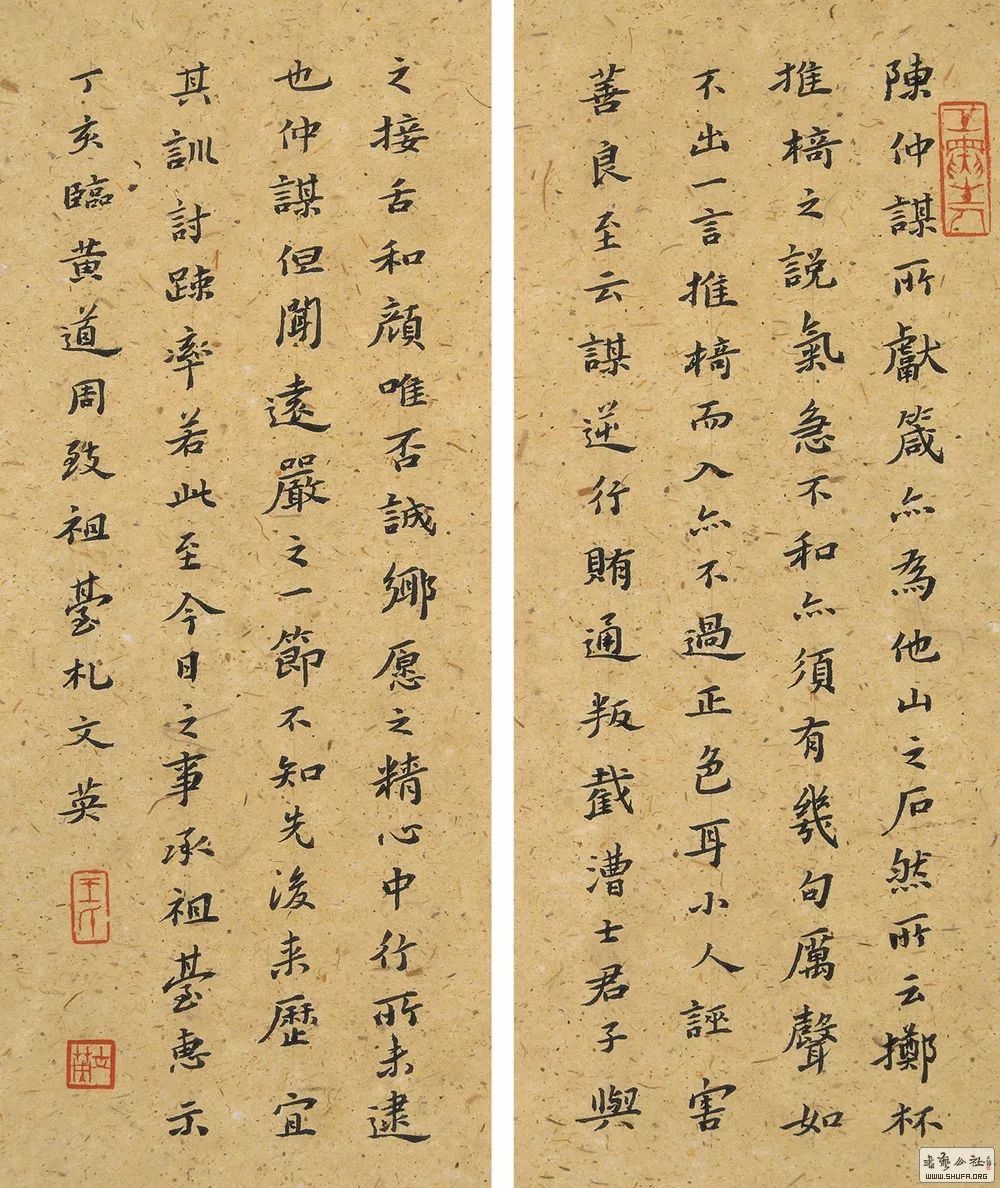 陳仲謀所獻箴亦為他山之石然所云擲杯
推椅之說氣急不和亦須有幾句厲聲如
不出一言推椅而入亦不過正色耳小人誣害
善良至云謀逆行賄通叛截漕士君子與
之接舌和顏唯否誠鄉愿之精心中行所未逮
也仲謀但聞遠嚴之一節不知先後来歷宜
其訓討踈率若此至今日之事承祖臺惠示
丁亥臨黃道周致祖臺札文英
書藝公社
WWW.SHUFA.ORG